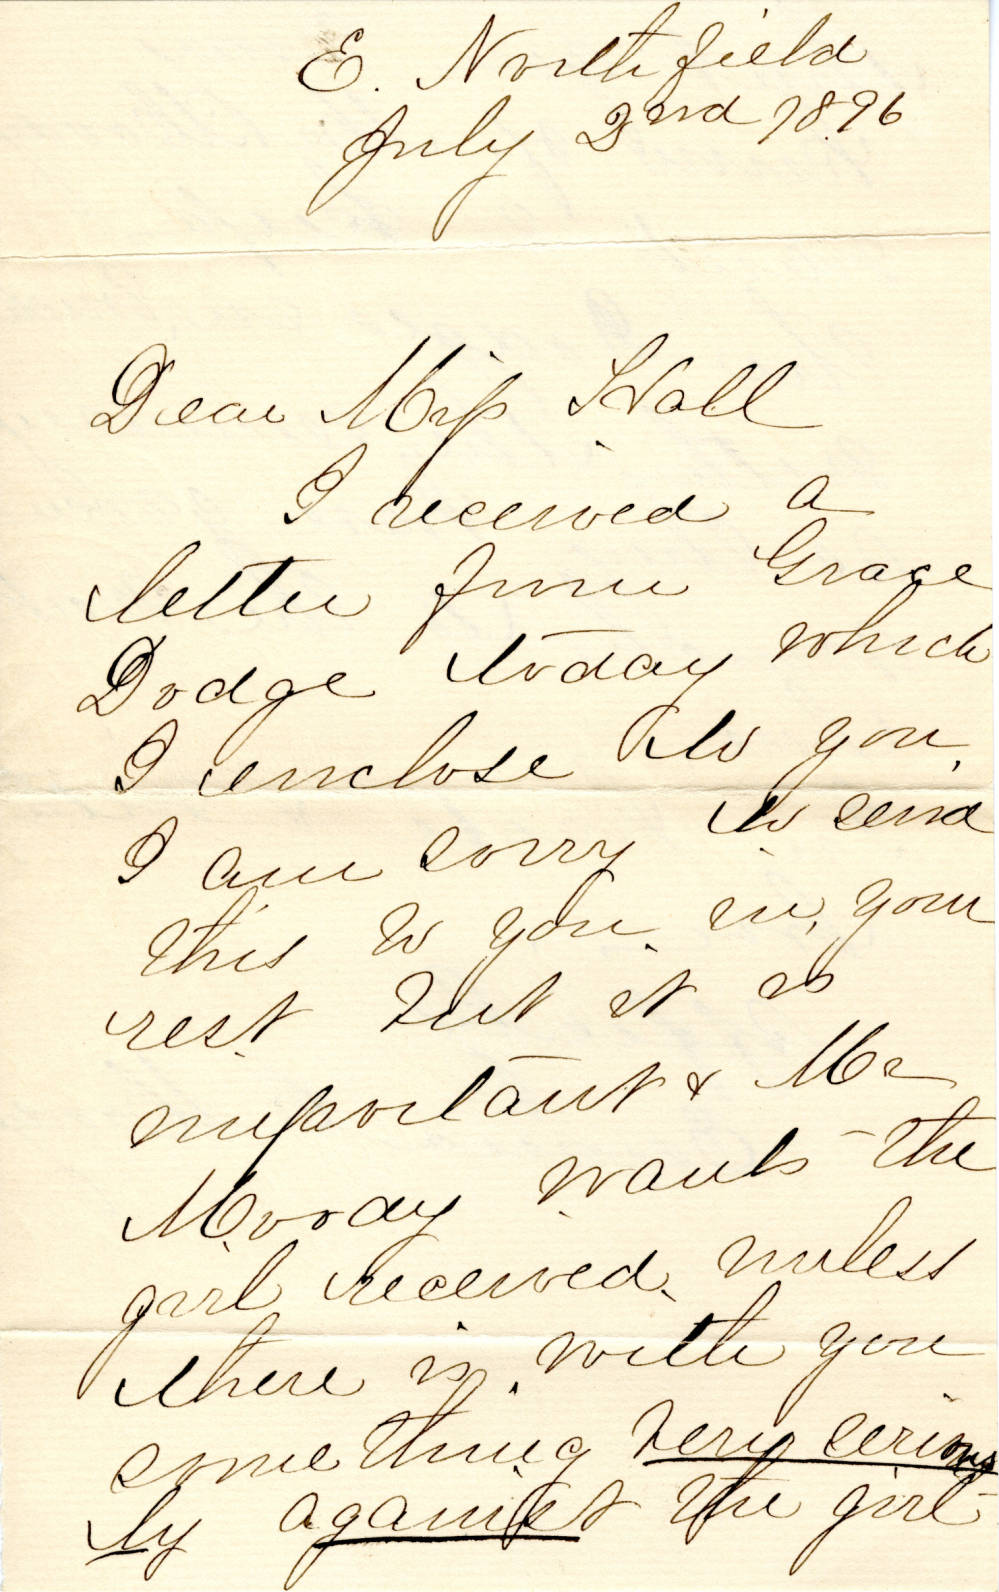 E. Northfield
July 2nd 1896
Dear Miss Hall
I received a
letter from Grace
Dodge today which
I enclose to you.
I am sorry to send
this to you in your
rest but it is
important & Mr
Moody wants the
girl received unless
there is with you
something very serious
ly against the girl